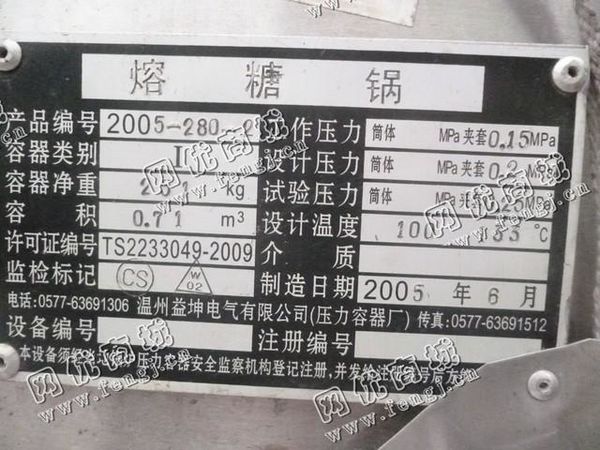 熔糖锅
产品编号 2005-280- 工作压力 筒体 MPa 夹套 0.15 MPa
容器类别 设计压力 筒体 MPa 夹套 MPa
容器净重 kg 试验压力 筒体 MPa 夹套 MPa
容积 0.71 m³ 设计温度 133 ℃
许可证编号 TS2233049-2009 介质
监检标记 CS W 02 制造日期 2005 年 6 月
电话:0577-63691306 温州益坤电气有限公司(压力容器厂) 传真:0577-63691512
设备编号 注册编号
本设备须经 压力容器安全监察机构登记注册,并发给注册编号后方
网优商城
www.fengj.cn